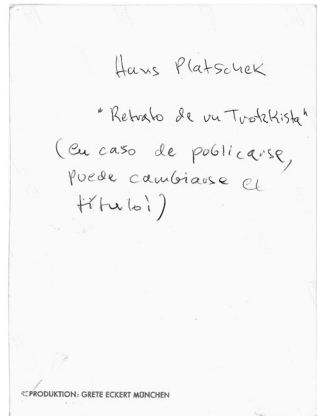 Hans Platschek
"Retrato de un Trotzkista"
(en caso de publicarse,
puede cambiarse el
título!)
REPRODUKTION: GRETE ECKERT MÜNCHEN